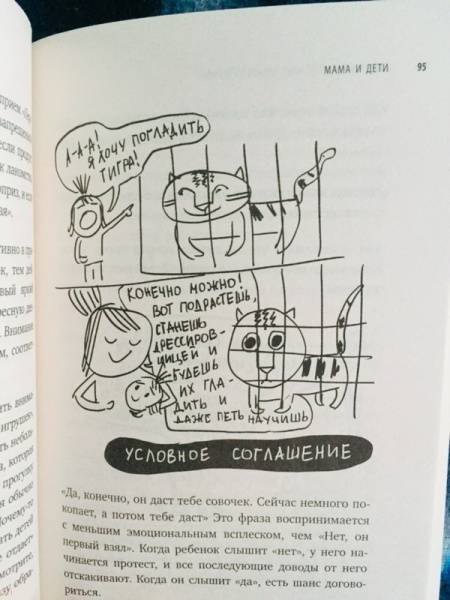 МАМА И ДЕТИ 95
А-А-А!
Я ХОЧУ ПОГЛАДИТЬ
ТИГРА!
КОНЕЧНО МОЖНО!
ВОТ ПОДРАСТЕШЬ,
СТАНЕШЬ
ДРЕССИРОВ-
ЩИЦЕЙ И
БУДЕШЬ
ИХ ГЛА-
ДИТЬ И
ДАЖЕ ПЕТЬ НАУЧИШЬ
УСЛОВНОЕ СОГЛАШЕНИЕ
«Да, конечно, он даст тебе совочек. Сейчас немного по-
копает, а потом тебе даст» Это фраза воспринимается
с меньшим эмоциональным всплеском, чем «Нет, он
первый взял». Когда ребенок слышит «нет», у него на-
чинается протест, и все последующие доводы от него
отскакивают. Когда он слышит «да», есть шанс догово-
риться.